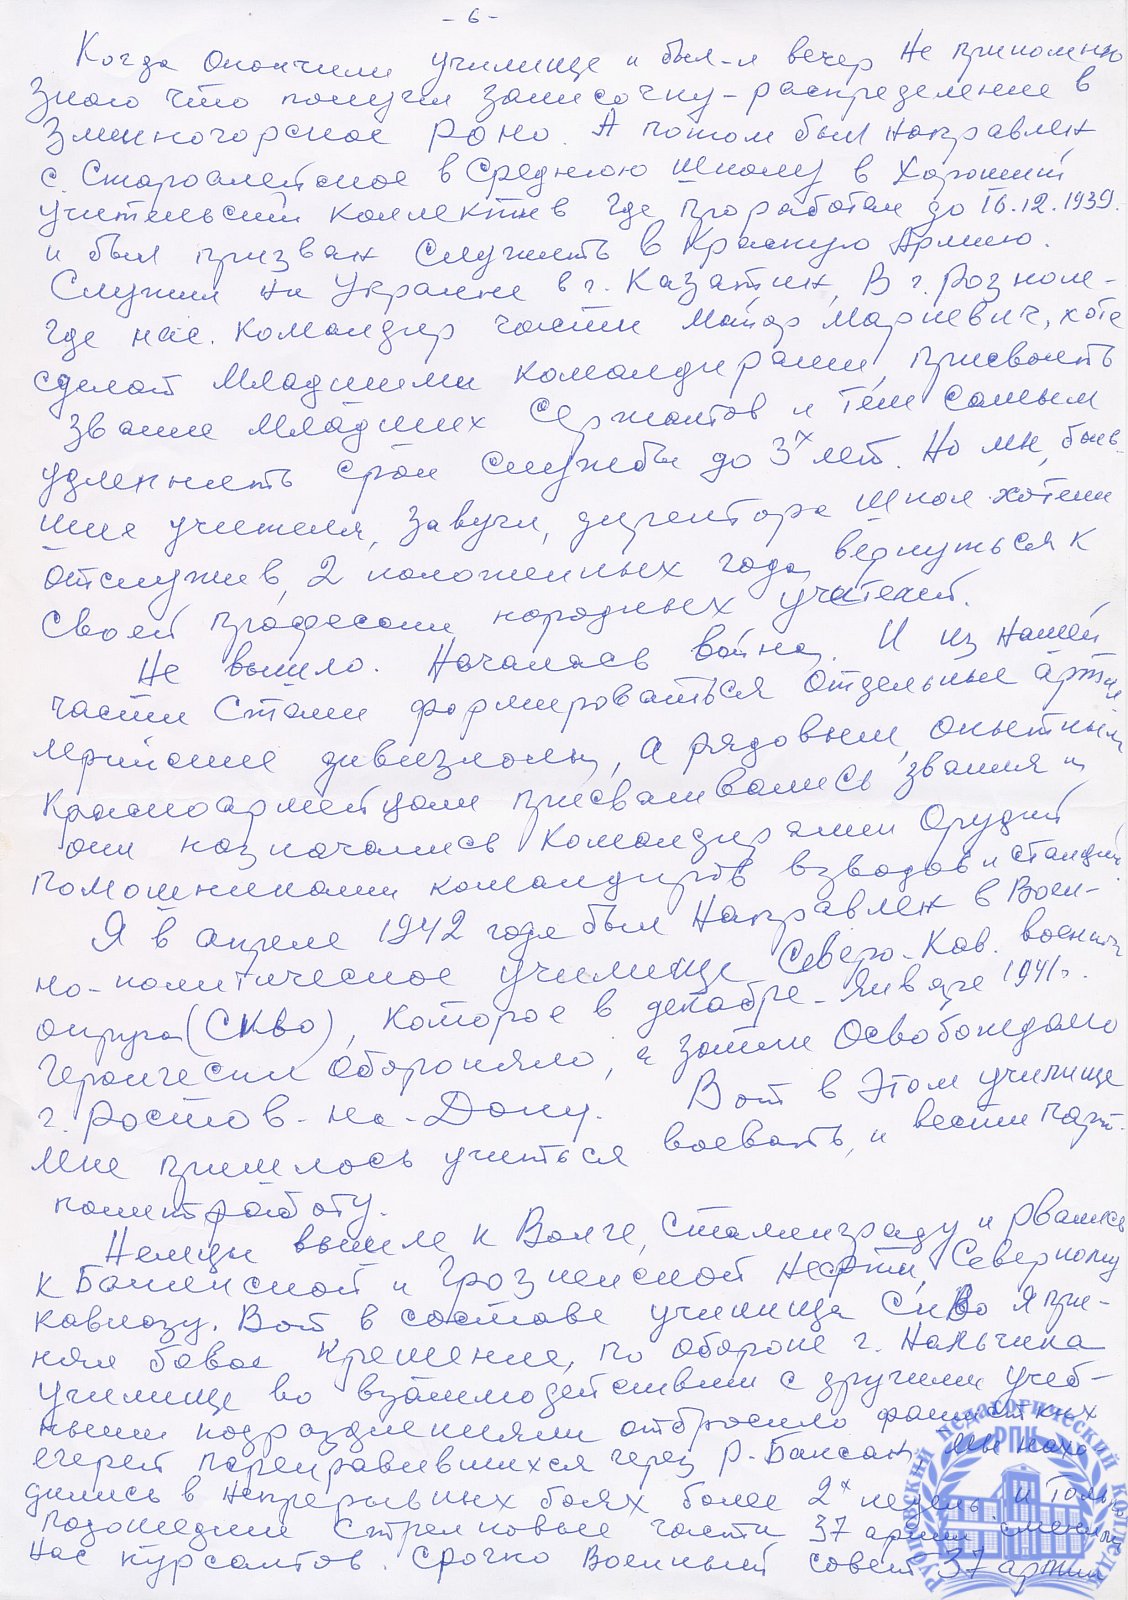 - 6 -
Когда окончили училище и был-л вечер не припомню
Знаю что получил записочку-распределение в
Змеиногорское РОНО. А потом был направлен
с. Староалейское в Среднюю школу в Хороший
учительский коллектив где проработал до 16.12.1939.
и был призван служить в Красную Армию.
Служил на Украине в г. Казатин, В г. Розноле-
где нас. командир части Майор Мариевич, хоте
сделат младшими командирами, присвоить
звание младших Сержантов и тем самым
удлекнить срок службы до 3х лет. Но мы, быв-
шие учителя, завучи, директора школ хотели
отслужив, 2 положенных года вернуться к
своей професси народных учителей.
Не вышло. Началась война. И из нашей
части Стали формироваться отдельные арти
лерийские дивизионы, а рядовым, опытным
красноармейцам присваивались звания и
они назначались Командирами Орудий
помошниками командиров взводов и
Я в апреле 1942 года был Направлен в Воен-
но-политическое училище Северо-Кав. военн
округа (СКВО), которое в декабре-Январе 1941г.
Героически обороняло, и затем Освобождало
г. Ростов-на-Дону. Вот в Этом училище
мне пришлось учиться воевать, и вести парт.
политработу.
Немцы вышле к Волге, Сталинграду и рвались
к Бакинской и Грозненской нефти, Северному
кавказу. Вот в составе училища СКВО Я при-
нял бовое крешение, по обороне г. Нальчика
училище во взаимодействии с другими учеб-
ными подразделениями отбросило фашистких
егерей переправившихся через р. Баксан, мы нахо
дились в непрерывных боях более 2х недель и толь
подошедшие стрелковые части 37 армии сменили
нас курсантов. Срочно Военный совет 37 армии
РУБЦОВСКИЙ ПЕДАГОГИЧЕСКИЙ КОЛЛЕДЖ
РПК